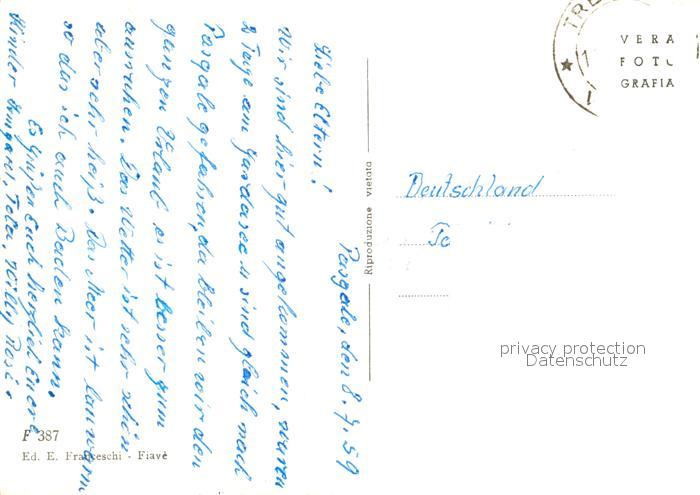 Pasgale, den 8.7.59
Liebe Eltern!
Wir sind hier gut angekommen, waren
2 Tage am Gardasee u sind gleich nach
Pasgale gefahren, da bleiben wir den
ganzen Urlaub es ist besser zum
ausruhen. Das Wetter ist sehr schön
aber sehr heiß. Das Meer ist lauwarm
so das ich auch Baden kann.
Es grüßen Euch herzlich Eure
Kinder Irmgard, Willy
Riproduzione vietata
VERA
FOTO
GRAFIA
Deutschland
F 387
Ed. E. Franceschi - Fiavè
privacy protection
Datenschutz